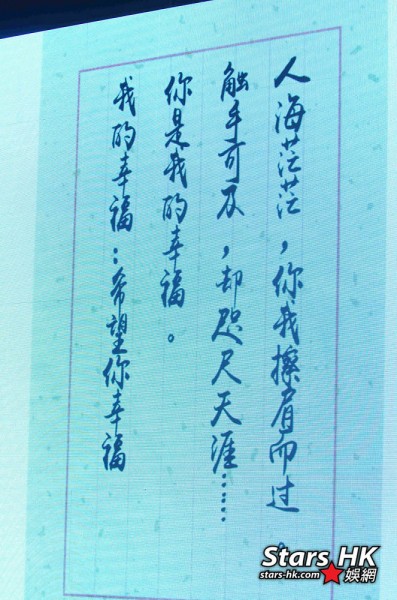 人海茫茫，你我擦肩而过。
触手可及，却咫尺天涯……
你是我的幸福。
我的幸福：希望你幸福
Stars HK
stars-hk.com 娛網